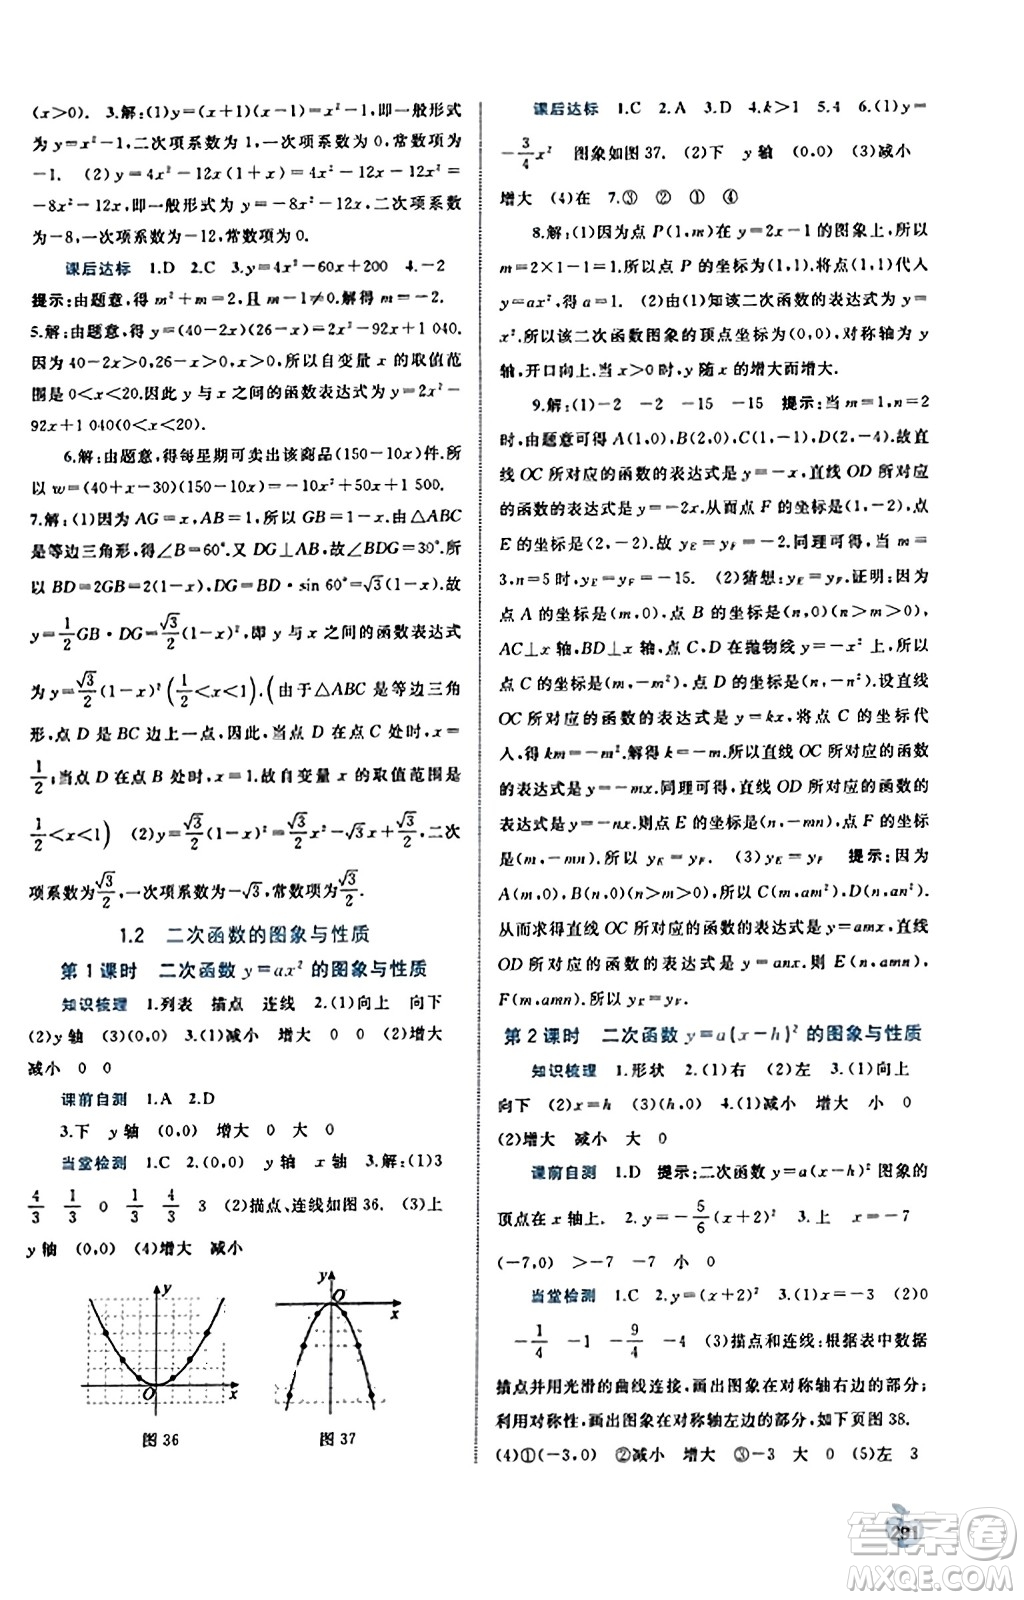 (x>0). 3.解:(1)y=(x+1)(x-1)=x²-1,即一般形式
为 y=x²-1,二次项系数为 1,一次项系数为 0,常数项为
-1. (2)y=4x²-12x(x+1)=-8x²-12x,即 y=
-8x²-12x,即一般形式为 y=-8x²-12x,二次项系数
为-8,一次项系数为-12,常数项为 0.
课后达标 1.D 2.C 3.y=4x²-60x+200 4.-2
提示:由题意,得 m²+m=2,且 m-1≠0.解得 m=-2.
5.解:由题意,得 y=(40-2x)(26-x)=2x²-92x+1 040.
因为 40-2x>0,26-x>0,x>0,所以自变量 x 的取值范
围是 0<x<20.因此 y 与 x 之间的函数表达式为 y=2x²-
92x+1 040(0<x<20).
6.解:由题意,得每星期可卖出该商品(150-10x)件.所
以 w=(40+x-30)(150-10x)=-10x²+50x+1 500.
7.解:(1)因为 AG=x,AB=1,所以 GB=1-x.由△ABC
是等边三角形,得∠B=60°.又 DG⊥AB,故∠BDG=30°.所
以 BD=2GB=2(1-x),DG=BD·sin 60°=√3(1-x).故
y=1/2 GB·DG=√3/2(1-x)²,即 y 与 x 之间的函数表达式
为 y=√3/2(1-x)²(1/2<x<1).(由于△ABC 是等边三角
形,点 D 是 BC 边上一点,因此当点 D 在点 C 处时,x=
1/2;当点 D 在点 B 处时,x=1.故自变量 x 的取值范围是
1/2<x<1) (2)y=√3/2(1-x)²=√3/2x²-√3x+√3/2,二次
项系数为√3/2,一次项系数为-√3,常数项为√3/2.
1.2 二次函数的图象与性质
第 1 课时 二次函数 y=ax² 的图象与性质
知识梳理 1.列表 描点 连线 2.(1)向上 向下
(2)y 轴 (3)(1)减小 增大 0 0 (2)增大
减小 0 0
课前自测 1.A 2.D
3.下 y 轴 (0,0) 增大 0 大 0
当堂检测 1.C 2.(0,0) y 轴 x 轴 3.解:(1)3
4/3 1/3 0 1/3 4/3 3 (2)描点、连线如图 36. (3)上
y 轴 (0,0) (4)增大 减小
y
O
x
图 36
y
O
x
图 37
课后达标 1.C 2.A 3.D 4.k>1 5.4 6.(1)y=
-3/4x² 图象如图 37. (2)下 y 轴 (0,0) (3)减小
增大 (4)在 7.③ ② ① ④
8.解:(1)因为点 P(1,m)在 y=2x-1 的图象上,所
以 m=2×1-1=1.所以点 P 的坐标为(1,1).将(1,1)代人
y=ax²,得 a=1. (2)由(1)知该二次函数的表达式为 y=
x².所以该二次函数图象的顶点坐标为(0,0),对称轴为 y
轴,开口向上.当 x>0 时,y 随 x 的增大而增大.
9.解:(1)-2 -2 -15 -15 提示:当 m=1,n=2
时,由题意可得 A(1,0),B(2,0),C(1,-1),D(2,-4).故直
线 OC 所对应的函数的表达式是 y=-x,直线 OD 所对应
的函数的表达式是 y=-2x.从而点 F 的坐标是(1,-2),点
E 的坐标是(2,-2).所以 yE=yF=-2.同理可得,当 m=
3,n=5 时,yE=yF=-15. (2)猜想:yE=yF.证明:因为
点 A 的坐标是(m,0),点 B 的坐标是(n,0)(n>m>0),
AC⊥x 轴,BD⊥x 轴,点 C,D 在抛物线 y=-x² 上,所以
点 C 的坐标是(m,-m²),点 D 的坐标是(n,-n²).设直线
OC 所对应的函数的表达式是 y=kx,将点 C 的坐标代
人,得 km=-m².解得 k=-m.所以直线 OC 所对应的函数
的表达式是 y=-mx.同理可得,直线 OD 所对应的函数的
表达式是 y=-nx.则点 E 的坐标是(n,-mn),点 F 的坐标
是(m,-mn).所以 yE=yF. (3)yE=yF 提示:因为
A(m,0),B(n,0)(n>m>0),所以 C(m,am²),D(n,an²).
从而求得直线 OC 所对应的函数的表达式是 y=amx,直线
OD 所对应的函数的表达式是 y=anx.则 E(n,amn),
F(m,amn).所以 yE=yF.
第 2 课时 二次函数 y=a(x-h)² 的图象与性质
知识梳理 1.形状 2.(1)右 (2)左 3.(1)向上
向下 (2)x=h (3)(h,0) 4.(1)减小 增大 小 0
(2)增大 减小 大 0
课前自测 1.D 提示:二次函数 y=a(x-h)² 图象的
顶点在 x 轴上. 2.y=-5/6(x+2)² 3.上 x=-7
(-7,0) > -7 -7 小 0
当堂检测 1.C 2.y=(x+2)² 3.(1)x=-3 (2)0
-1/4 -1 -9/4 -4 (3)描点和连线:根据表中数据
描点并用光滑的曲线连接,画出图象在对称轴右边的部分;
利用对称性,画出图象在对称轴左边的部分,如下页图 38.
(4)①(-3,0) ②减小 增大 ③-3 大 0 (5)左 3
291
答案卷
MXQE.COM